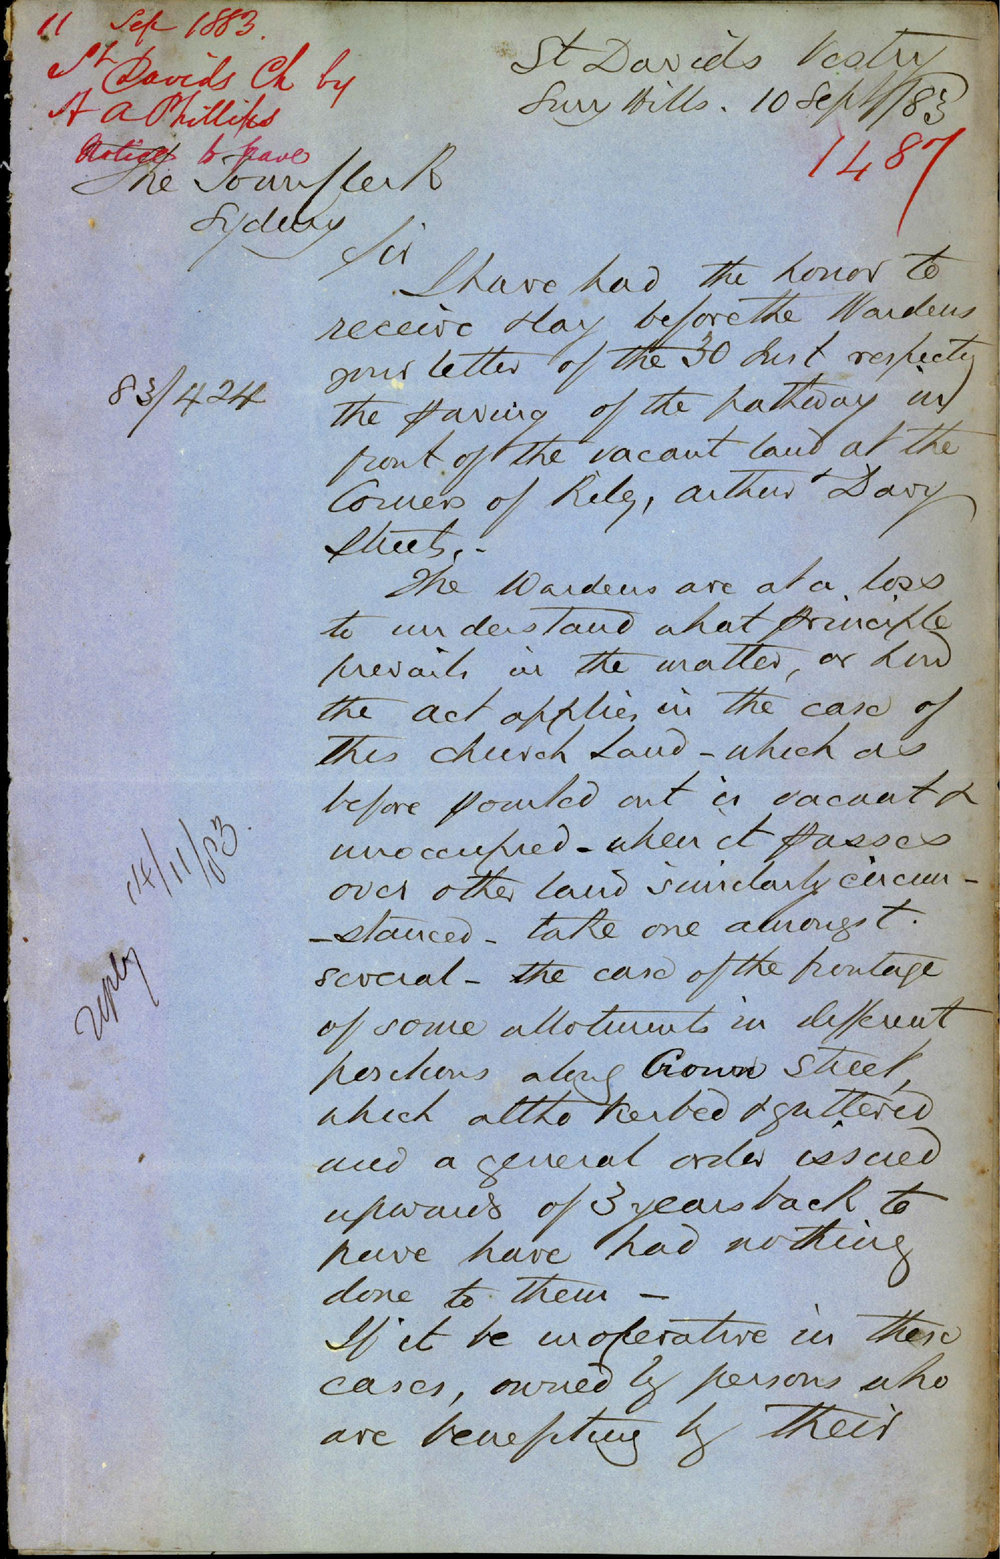 11 Sep 1883.
St Davids Ch by
A A Phillips
Notice to pave
St Davids Vestry
Surry Hills. 10 Sept/83
1487
The Town Clerk
Sydney
Sir
I have had the honor to
receive & lay before the Wardens
your letter of the 30 Inst respectg
83/424
the paving of the pathway in
front of the vacant land at the
Corners of Rily, Arthur & Davy
Streets. -
The Wardens are at a loss
to understand what principle
prevails in the matter, or how
the act applies in the case of
this church Land - which as
before pointed out is vacant &
unoccupied - when it passes
over other land similarly circum-
-stanced - take one amongst
several - the case of the frontage
of some allotments in different
portions along Crown Street,
which altho Kerbed & guttered
and a general order issued
upwards of 3 years back to
pave have had nothing
done to them -
If it be inoperative in these
cases, owned by persons who
are benefiting by their
reply 14/11/83.